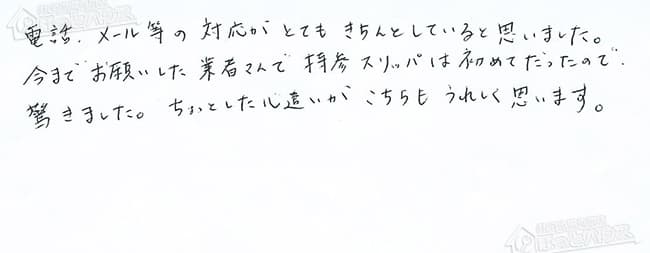 電話、メール等の対応がとてもきちんとしていると思いました。
今までお願いした業者さんで持参スリッパは初めてだったので、
驚きました。ちょっとした心遣いがこちらもうれしく思います。